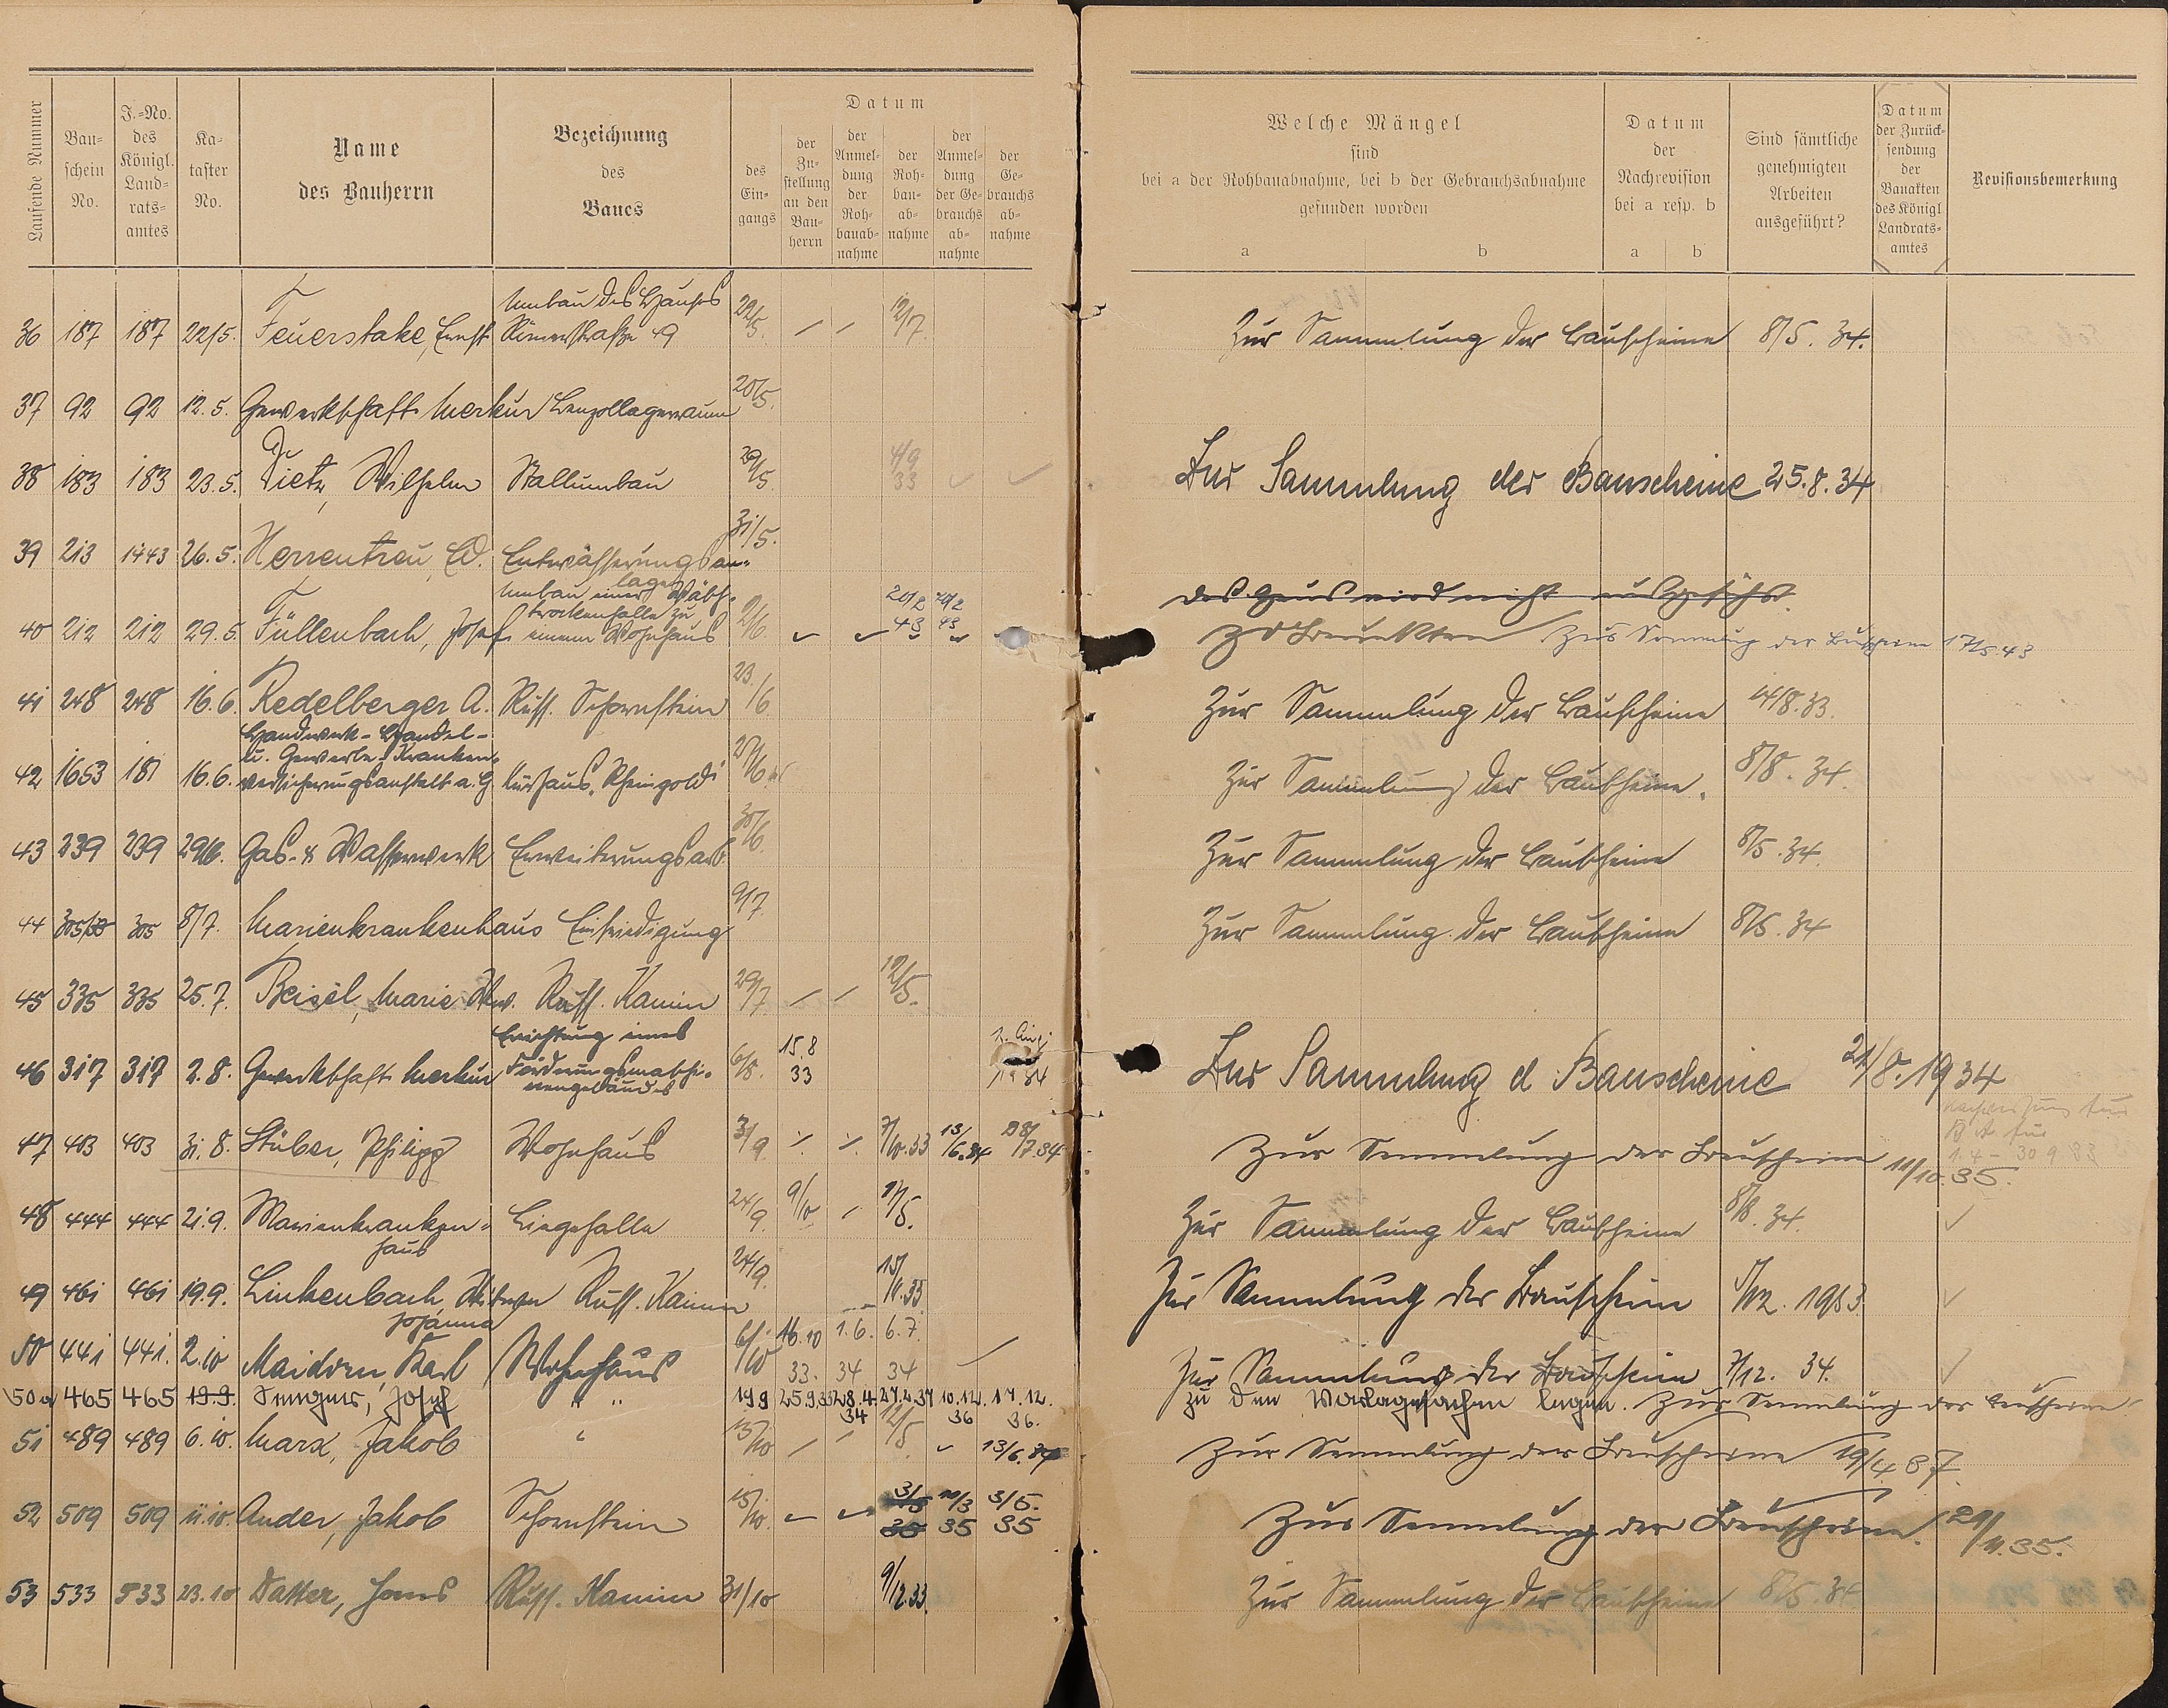 Laufende Nummer
Bau-
schein
No.
J.-No.
des
Königl.
Land-
rats-
amtes
Ka-
taster
No.
Name
des Bauherrn
Bezeichnung
des
Baues
Datum
des
Ein-
gangs
der
Zu-
stellung
an den
Bau-
herrn
der
Anmel-
dung
der
Roh-
bauab-
nahme
der
Roh-
bau-
ab-
nahme
der
Anmel-
dung
der Ge-
brauchs
ab-
nahme
der
Ge-
brauchs
ab-
nahme
Welche Mängel
sind
bei a der Rohbauabnahme, bei b der Gebrauchsabnahme
gefunden worden
a b
Datum
der
Nachrevision
bei a resp. b
a b
Sind sämtliche
genehmigten
Arbeiten
ausgeführt?
Datum
der Zurück-
sendung
der
Bauakten
des Königl
Landrats-
amtes
Revisionsbemerkung
Umbau des Hauses
36 187 187 22/5. Feuerstake, Ernst 22/5. 12/7. Zur Sammlung der Bauscheine 8/5. 34.
37 92 92 12.5. Gewerkschaft Merkur Benzollagerraum 20/5.
38 183 183 23.5. Dietz, Wilhelm Stallumbau 29/5. 4/9 33 Zur Sammlung der Bauscheine 25.8.34
39 213 1443 26.5. Herrentreu, Ed. Entwässerungsan-
lage 31/5.
Umbau einer
trockenhalle zu
das Haus wird nicht ausgeführt.
40 212 212 29.5. Füllenbach, Josef einem Wohnhaus 2/6. 20/2 43 20/2 43 Zur Sammlung der Bauscheine 17/5.43
41 248 248 16.6. Redelberger A. Russ. Schornstein 23./6 Zur Sammlung der Bauscheine 14/8.33.
Handwerk- Handel-
u. Gewerbe Kranken-
42 1653 181 16.6. versicherungsanstalt a. G Kurhaus "Rheingold" 27/6. Zur Sammlung der Bauscheine. 8/8. 34.
43 239 239 29/6. Gas- & Wasserwerk Erweiterungsarb. 30/6. Zur Sammlung der Bauscheine 8/5. 34.
44 305/33 305 8/7. Marienkrankenhaus Einfriedigung 9/7. Zur Sammlung der Bauscheine 8/5. 34
45 335 335 25.7. Beisel, Marie Ww. Russ. Kamin 29/7 12/5.
Errichtung eines
46 317 317 2.8. Gewerkschaft Merkur Förderungsmaschi-
nengebäudes 6/8. 15.8 33 Zur Sammlung d Bauscheine 21/8.1934
47 403 403 31.8. Stüber, Philipp Wohnhaus 3/9. 7/10.33 13/6.34 28/7.34 Zur Sammlung der Bauscheine 11/10.35.
1.4 - 30 9 33
48 444 444 21.9. Marienkranken-
haus Liegehalle 24/9. 9/10 Zur Sammlung der Bauscheine 8/8. 34.
49 461 461 19.9. Linkenbach, Witwe
Johanna Russ. Kamin 24/9. 15/11.33. Zur Sammlung der Bauscheine 5/12. 1933.
50 441 441. 2.10 Maidorn, Karl Wohnhaus 6/10 16.10 33. 1.6. 34 6.7. 34 Zur Sammlung der Bauscheine 7/12. 34.
50a 465 465 19.9. Josef " " 19 9 25.9.33 28.4. 34 27.4.34 10.12. 36 17.12. 36. zu den Vorlagesachen legen. Zur Sammlung der Bauscheine
51 489 489 6.10. Marx, Jakob " 13/10 12/5 13/6.34 Zur Sammlung der Bauscheine 19/4 37.
52 509 509 11.10. Ander, Jakob Schornstein 15/10. 3/5 35 10/3 35 3/5. 35 Zur Sammlung der Bauscheine. 29/11.35.
53 533 533 23.10 Datter, Hans Russ. Kamin 31/10 9/12.33. Zur Sammlung der Bauscheine 8/5. 34